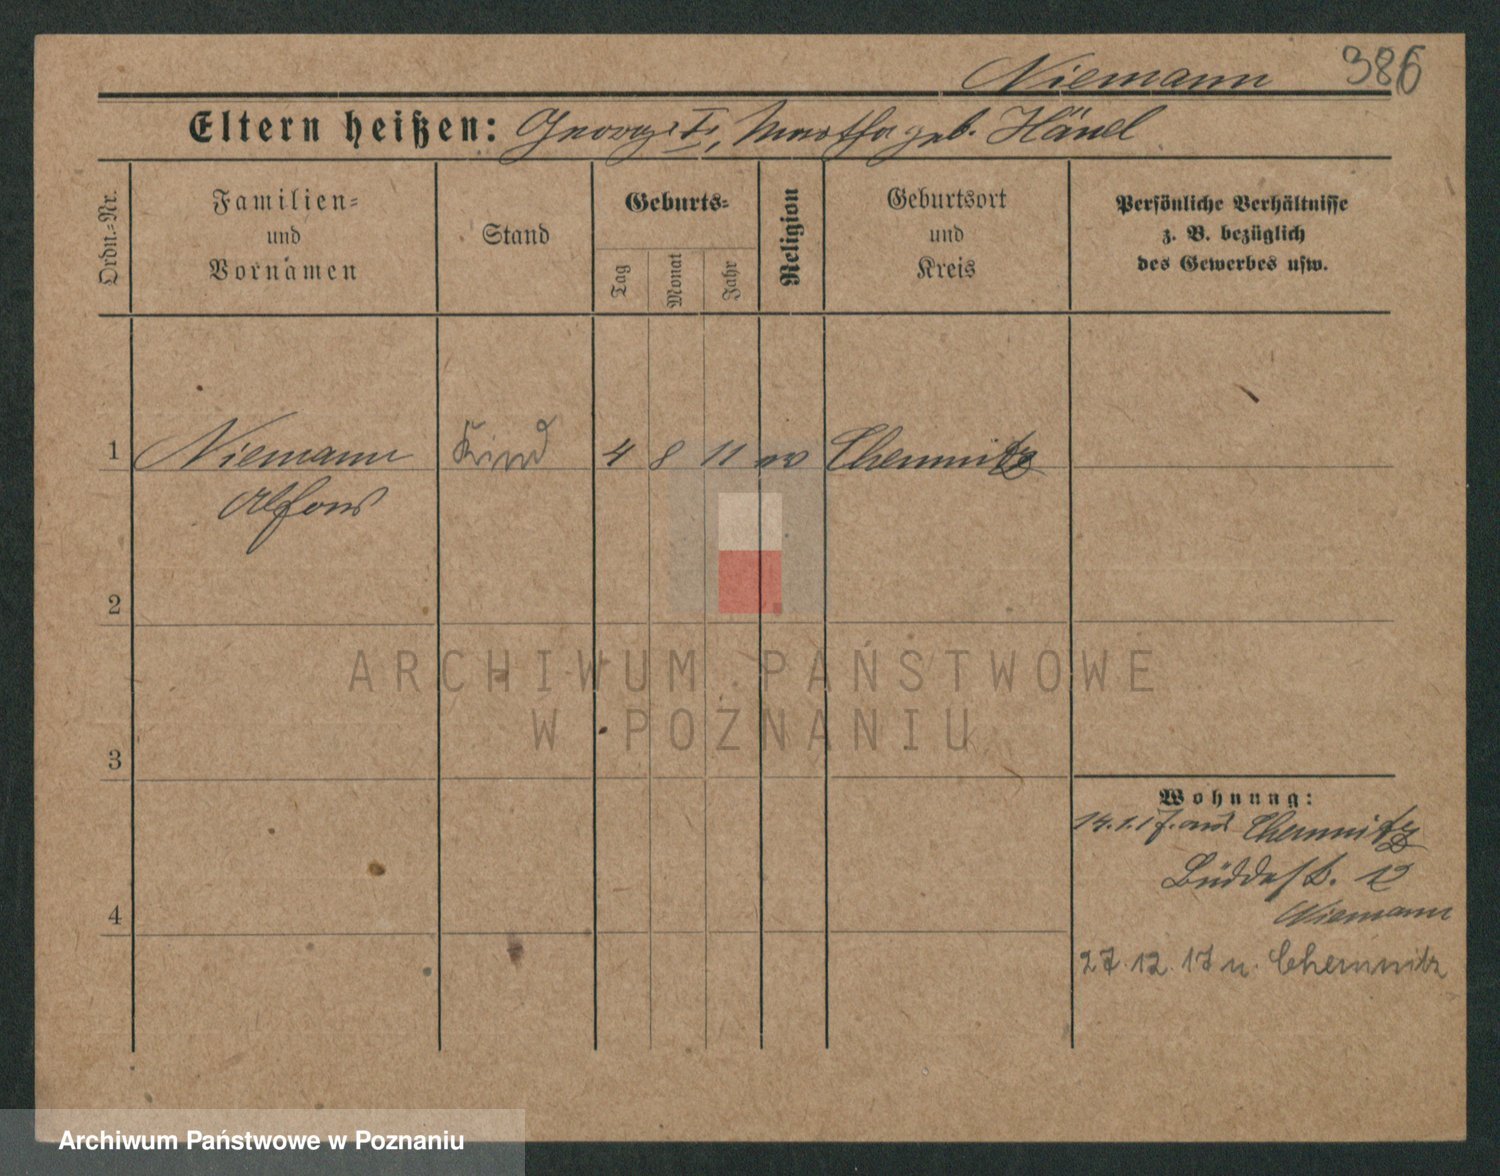 Niemann 386
Eltern heißen: Georg I, Martha geb. Hänel
Ordn.=Nr.
Familien=
und
Vornamen
Stand
Geburts=
Tag
Monat
Jahr
Religion
Geburtsort
und
Kreis
Persönliche Verhältnisse
z. B. bezüglich
des Gewerbes usw.
1 Niemann Kind 4 8 11 ev Chemnitz
Alfons
2
3
4
ARCHIWUM PAŃSTWOWE
W POZNANIU
Wohnung:
14.1.17. aus Chemnitz
12
Niemann
27.12.17 n. Chemnitz
Archiwum Państwowe w Poznaniu